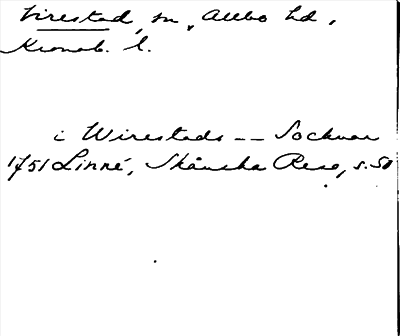 Virestad, sn, Allbo hd,
Kronob. l.
i Wirestads -- Socknar
1751 Linné, Skånska Resa, s. 50